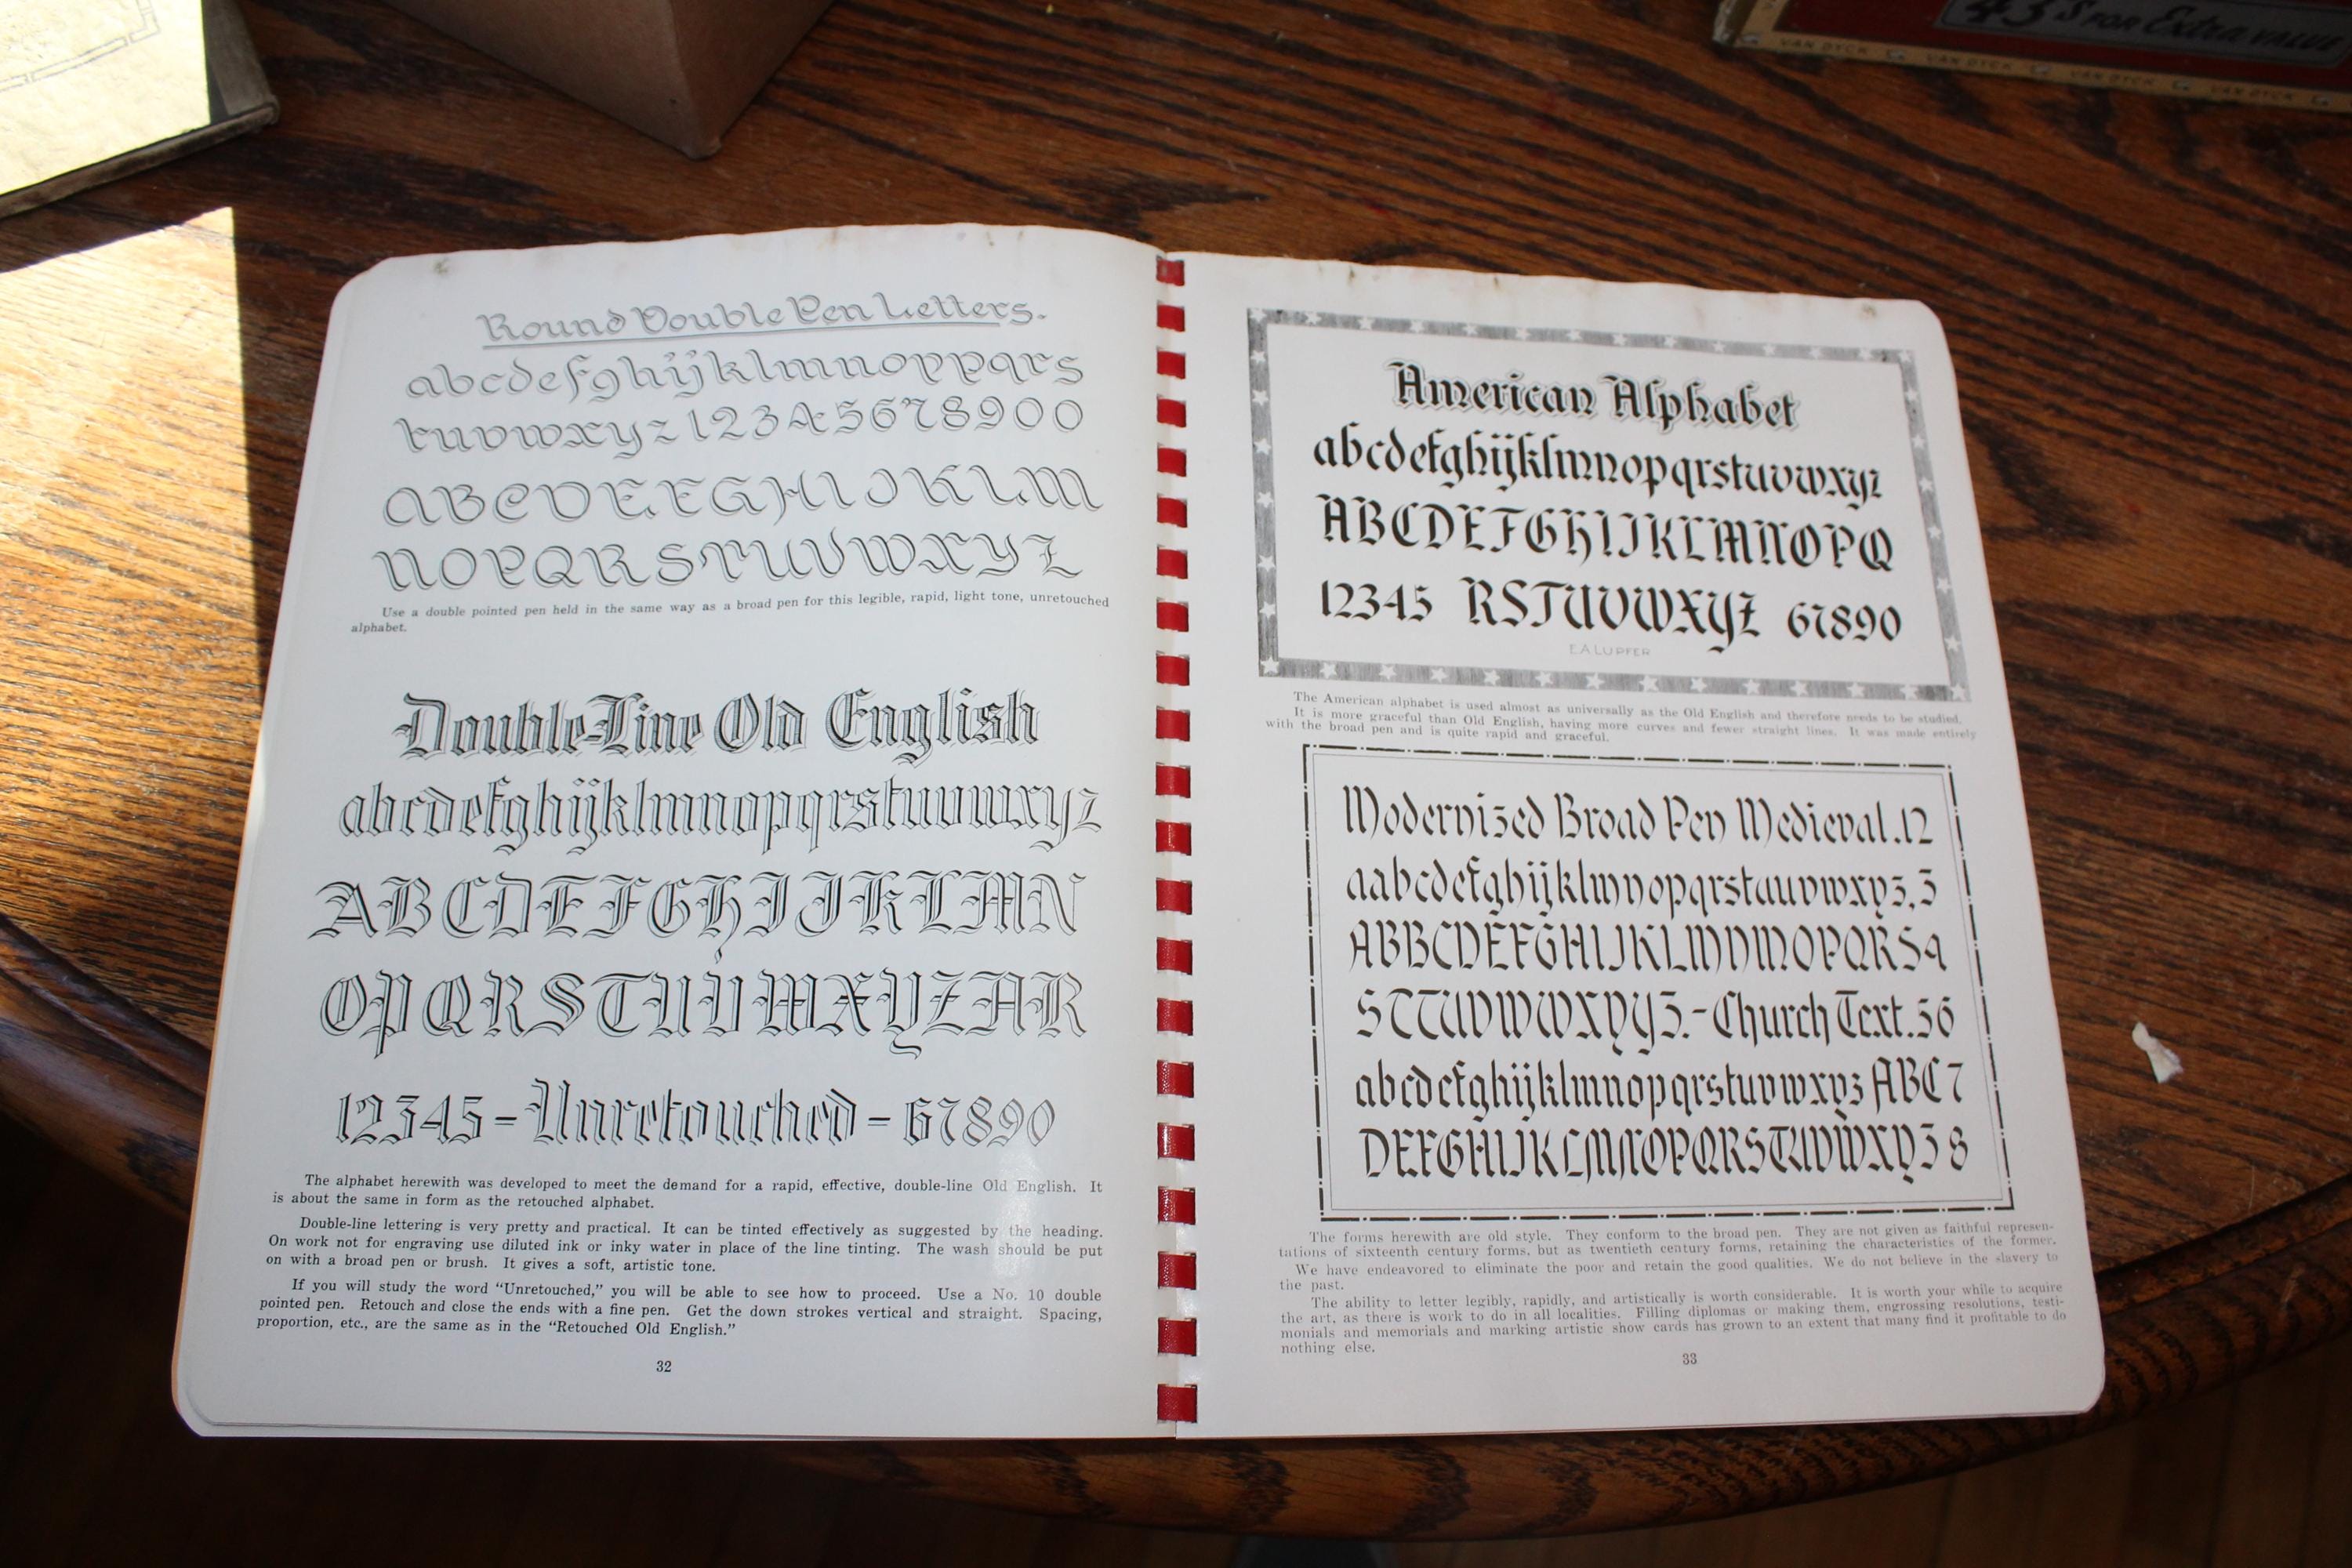 43's FOR Extra VALUE
VAN DYCK VAN DYCK VAN DYCK VAN DYCK
Round Double Pen Letters.
abcdefghijklmnoppqrs
tuvwxyz 12345678900
ABCDEFGHIJKLM
NOPQRSTUVWXYZ
Use a double pointed pen held in the same way as a broad pen for this legible, rapid, light tone, unretouched
alphabet.
Double-Line Old English
abcdefghijklmnopqrstuvwxyz
ABCDEFGHIJKLMN
OPQRSTUVWXYZAR
12345-Unretouched-67890
The alphabet herewith was developed to meet the demand for a rapid, effective, double-line Old English. It
is about the same in form as the retouched alphabet.
Double-line lettering is very pretty and practical. It can be tinted effectively as suggested by the heading.
On work not for engraving use diluted ink or inky water in place of the line tinting. The wash should be put
on with a broad pen or brush. It gives a soft, artistic tone.
If you will study the word "Unretouched," you will be able to see how to proceed. Use a No. 10 double
pointed pen. Retouch and close the ends with a fine pen. Get the down strokes vertical and straight. Spacing,
proportion, etc., are the same as in the "Retouched Old English."
32
American Alphabet
abcdefghijklmnopqrstuvwxyz
ABCDEFGHIJKLMNOPQ
12345 RSTUVWXYZ 67890
E.A.LUPFER
The American alphabet is used almost as universally as the Old English and therefore needs to be studied.
It is more graceful than Old English, having more curves and fewer straight lines. It was made entirely
with the broad pen and is quite rapid and graceful.
Modernized Broad Pen Medieval.12
aabcdefghijklmnopqrstuuvwxyz,3
ABBCDEFGHIJKLMNMOPQRS4
STTUVWWXYYZ.-Church Text.56
abcdefghijklmnopqrstuvwxyz ABC 7
DEFGHIJKLMNOPQRSTUVWXYZ 8
The forms herewith are old style. They conform to the broad pen. They are not given as faithful represen-
tations of sixteenth century forms, but as twentieth century forms, retaining the characteristics of the former.
We have endeavored to eliminate the poor and retain the good qualities. We do not believe in the slavery to
the past.
The ability to letter legibly, rapidly, and artistically is worth considerable. It is worth your while to acquire
the art, as there is work to do in all localities. Filling diplomas or making them, engrossing resolutions, testi-
monials and memorials and marking artistic show cards has grown to an extent that many find it profitable to do
nothing else.
33